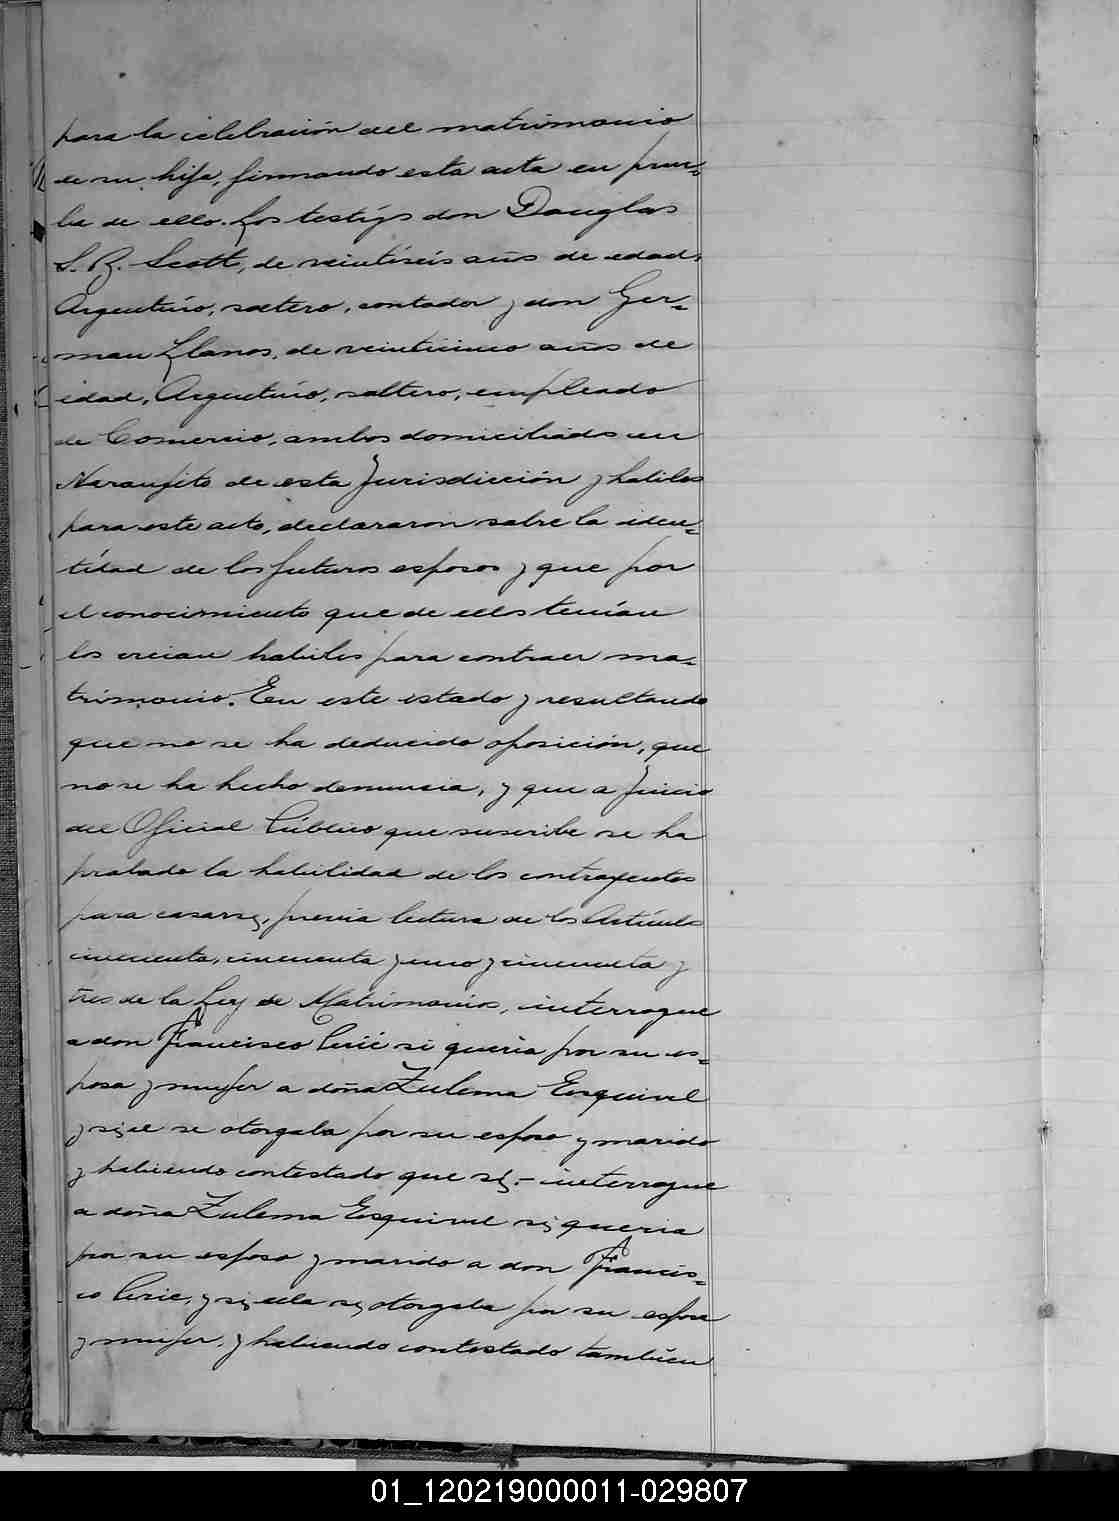 para la celebración del matrimonio
de su hija, firmando esta acta en prue-
ba de ello. Los testigos don Douglas
S. R. Scott, de veintiseis años de edad,
Argentino, soltero, contador y don Ger-
man Llanos, de veinticinco años de
edad, Argentino, soltero, empleado
de Comercio, ambos domiciliados en
Naranjito de esta Jurisdicción y habiles
para este acto, declararon sobre la iden-
tidad de los futuros esposos y que por
el conocimiento que de ellos tenían
los creian habiles para contraer ma-
trimonio. En este estado y resultando
que no se ha deducido oposición, que
no se ha hecho denuncia, y que a juicio
del Oficial Público que suscribe se ha
probado la habilidad de los contrayentes
para casarse, previa lectura de los Artículos
cincuenta, cincuenta y uno y cincuenta y
tres de la Ley de Matrimonio, interrogue
a don Francisco Cirié si queria por su es-
posa y mujer a doña Zulema Esquivel
y si el se otorgaba por su esposo y marido
y habiendo contestado que si,- interrogue
a doña Zulema Esquivel si queria
por su esposo y marido a don Francis-
co Cirie, y si ella se otorgaba por su esposa
y mujer, y habiendo contestado tambien
01_120219000011-029807